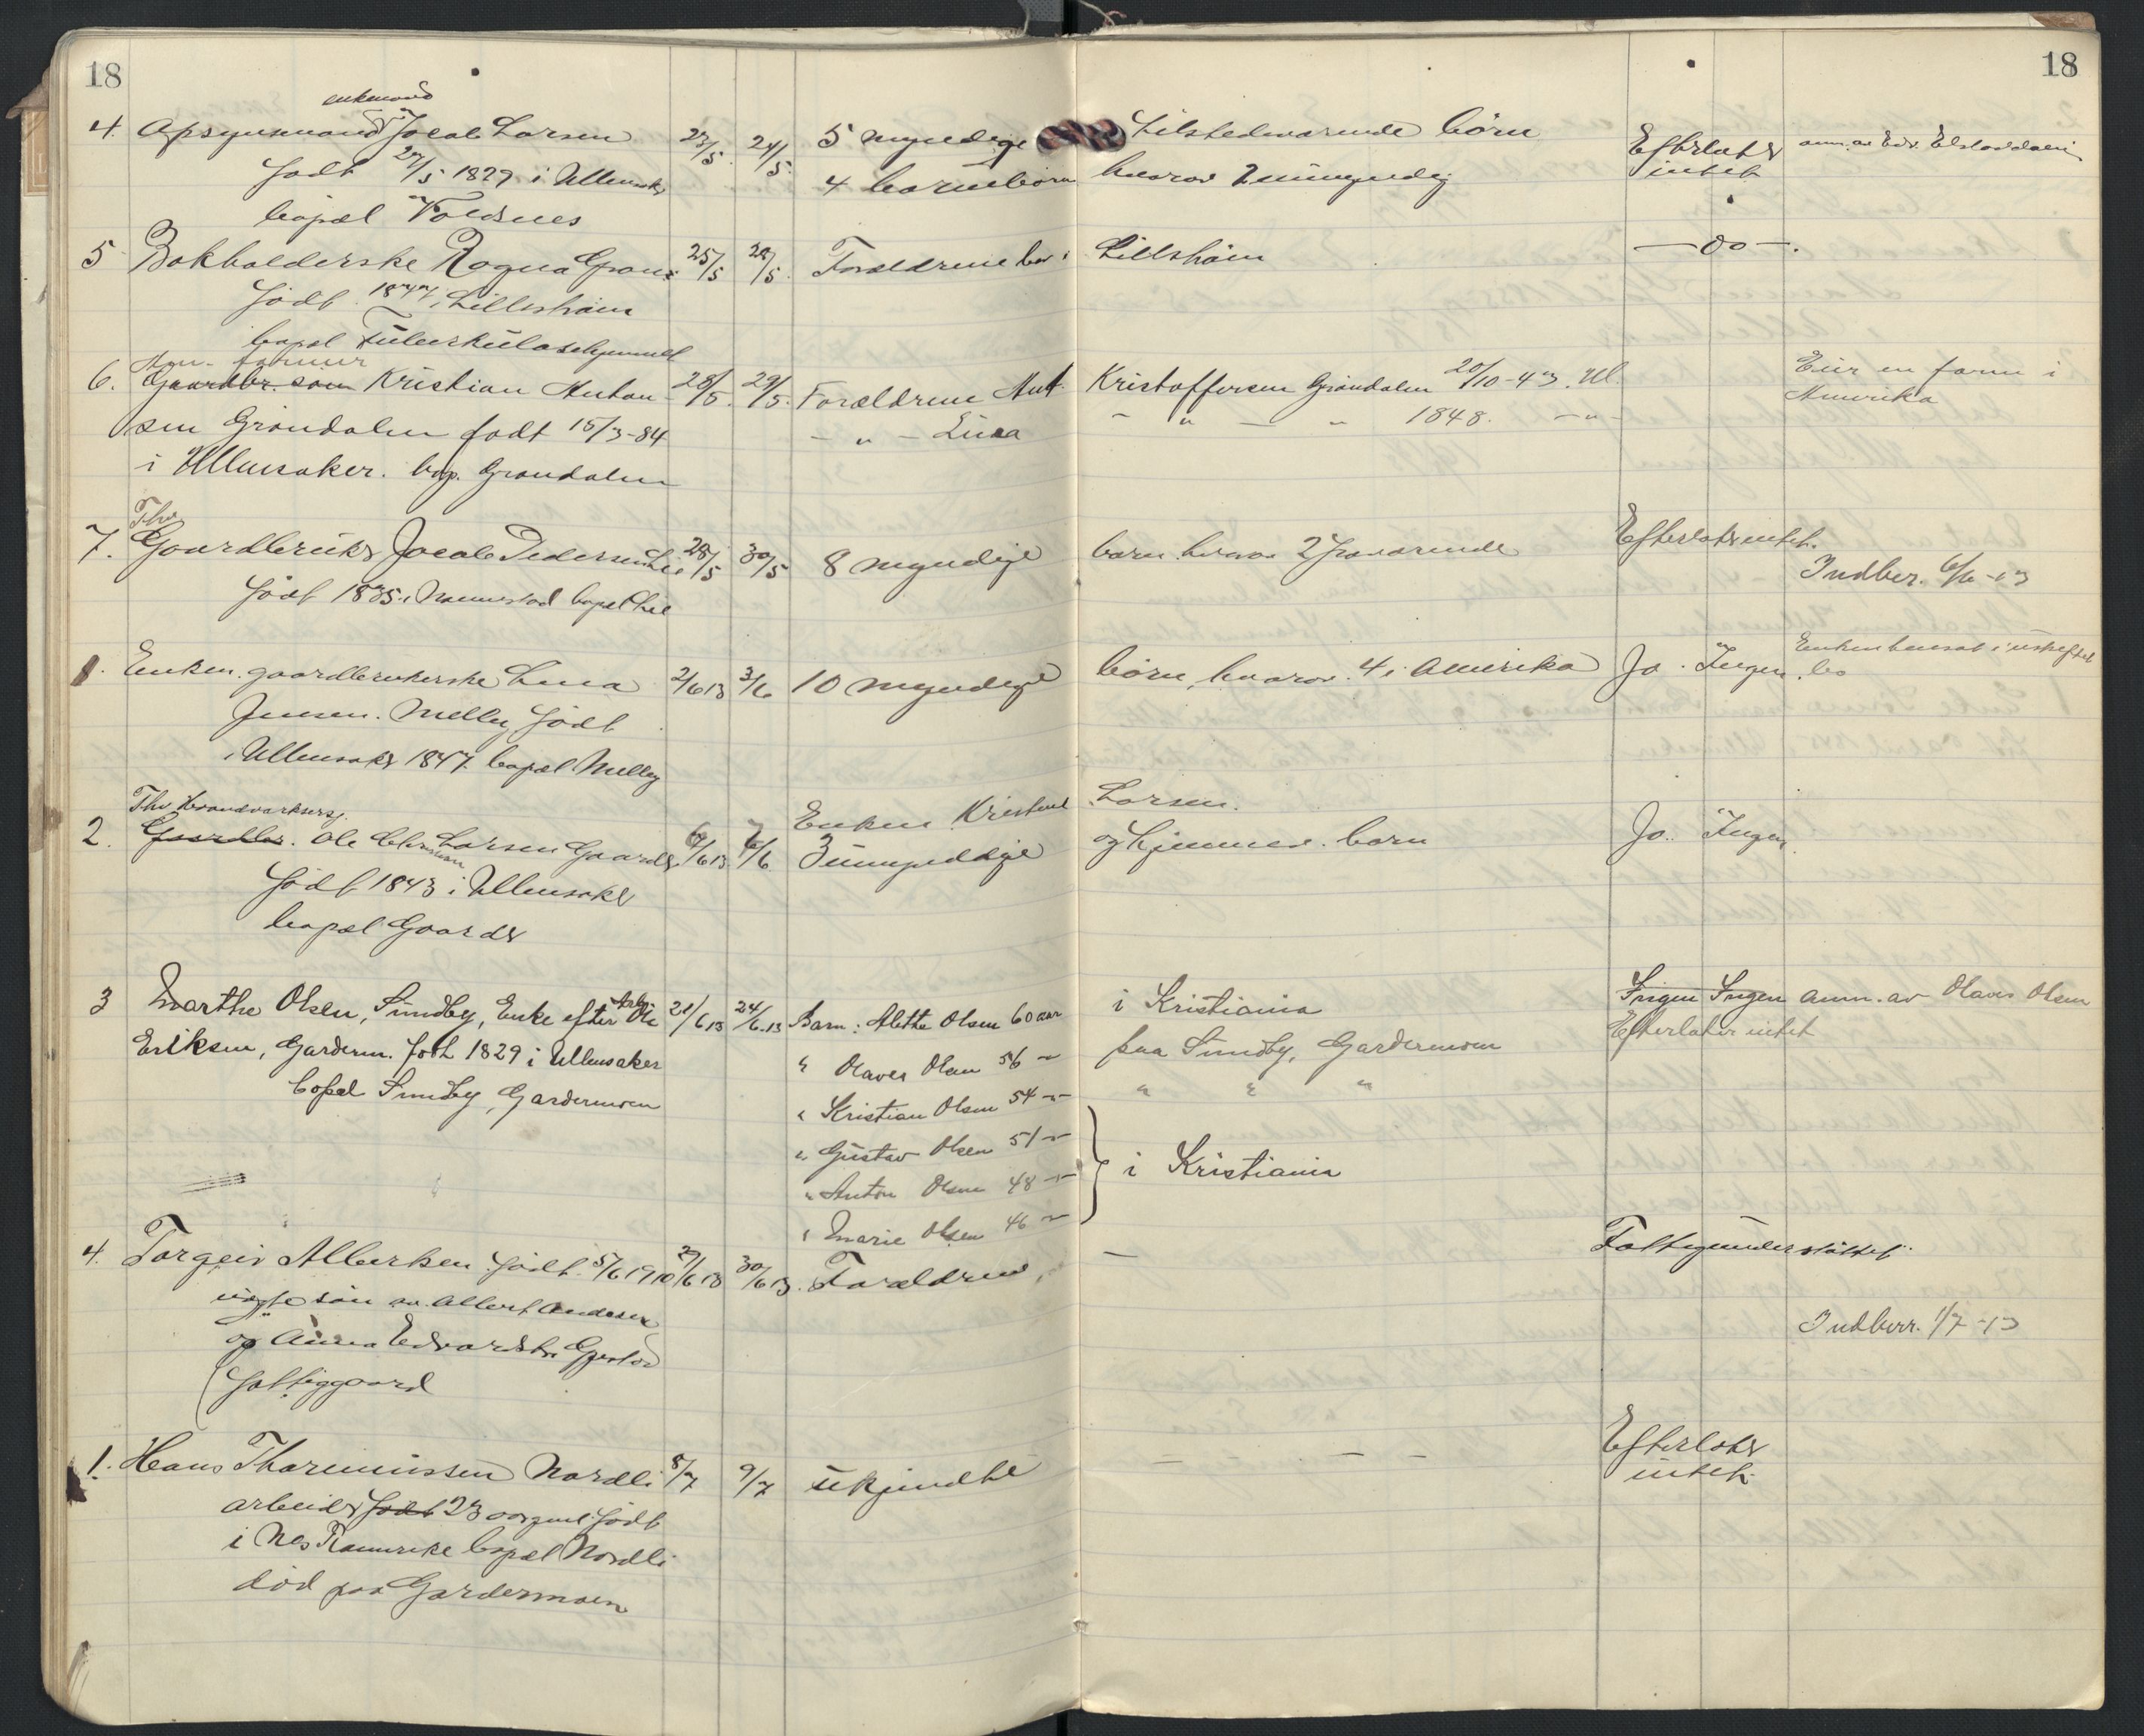 18
18
enkemand
4. Opsynsmand Jacob Larsen 23/5 24/5 5 myndige tilstedeværende børn Efterlater anm. av Edv.
født 27/5 1829 i Ullensaker 4 barnebørn hvorav 2 umyndig intet
bopæl
5 Bokholderske Ragna 25/5 28/5 Forældrene bor i Lillehām —do—.
født 1877 i Lillehām
bopæl Tuberkulosehjemmet
farmer
6. Gaardbr. søn Kristian Anton- 28/5 29/5 Forældrene Ant. Kristoffersen Grøndalen 20/10-43. Ul. Eier en farm i
sen Grøndalen født 15/3-84 - " - Lina - " - " 1848. - " - Amerika
i Ullensaker. bop. Grøndalen
Fhv
7. Gaardbruker Jacob Pedersen Lie 28/5 30/5 8 myndige børn hvorav 2 fraværende Efterlater intet.
født 1835 i Nannestad bopæl Lie Indber. 6/6-13
1. Enken gaardbrukerske Lina 2/6 13 3/6 10 myndige børn, hvorav 4 i Amerika Ja. Ingen. Enken hensat i uskiftet bo
Jensen Melby født
i Ullensaker 1847. bopæl Melby
Fhv Haandværksersj.
2. Gaardbr. Ole Larsen Gaarder 6/6 13 7/6 Enken Larsen.
3 umyndige og hjemmev. børn Ja. Ingen.
født 1843 i Ullensaker
bopæl Gaarder
3 Marthe Olsen, Sundby, Enke efter Arb. Ole 21/6 13 24/6.13 Barn: Alette Olsen 60 aar i Kristiania Ingen Ingen anm. av Olaves Olsen
Eriksen, Garderm. født 1829 i Ullensaker " Olaves Olsen 56 - " - paa Sundby, Gardermoen Efterlater intet
bopæl Sundby, Gardermoen " Kristian Olsen 54 - " - " " "
" Gustav Olsen 51 - " -
" Anton Olsen 48 - " - } i Kristiania
" Marie Olsen 46 - " -
4. Torgeir Albertsen født 5/6 1910 29/6 13 30/6 13. Forældrene — Fattigunderstøttet.
uegte søn av Albert Andersen
og Anna Edvardsdtr. Indberr. 1/7-13
Fattiggaard
1. Hans Nordli 8/7 9/7 ukjendte — — — — Efterlater
arbeider født 23 aar gml. født intet.
i Nes Romerike bopæl Nordli
død paa Gardermoen